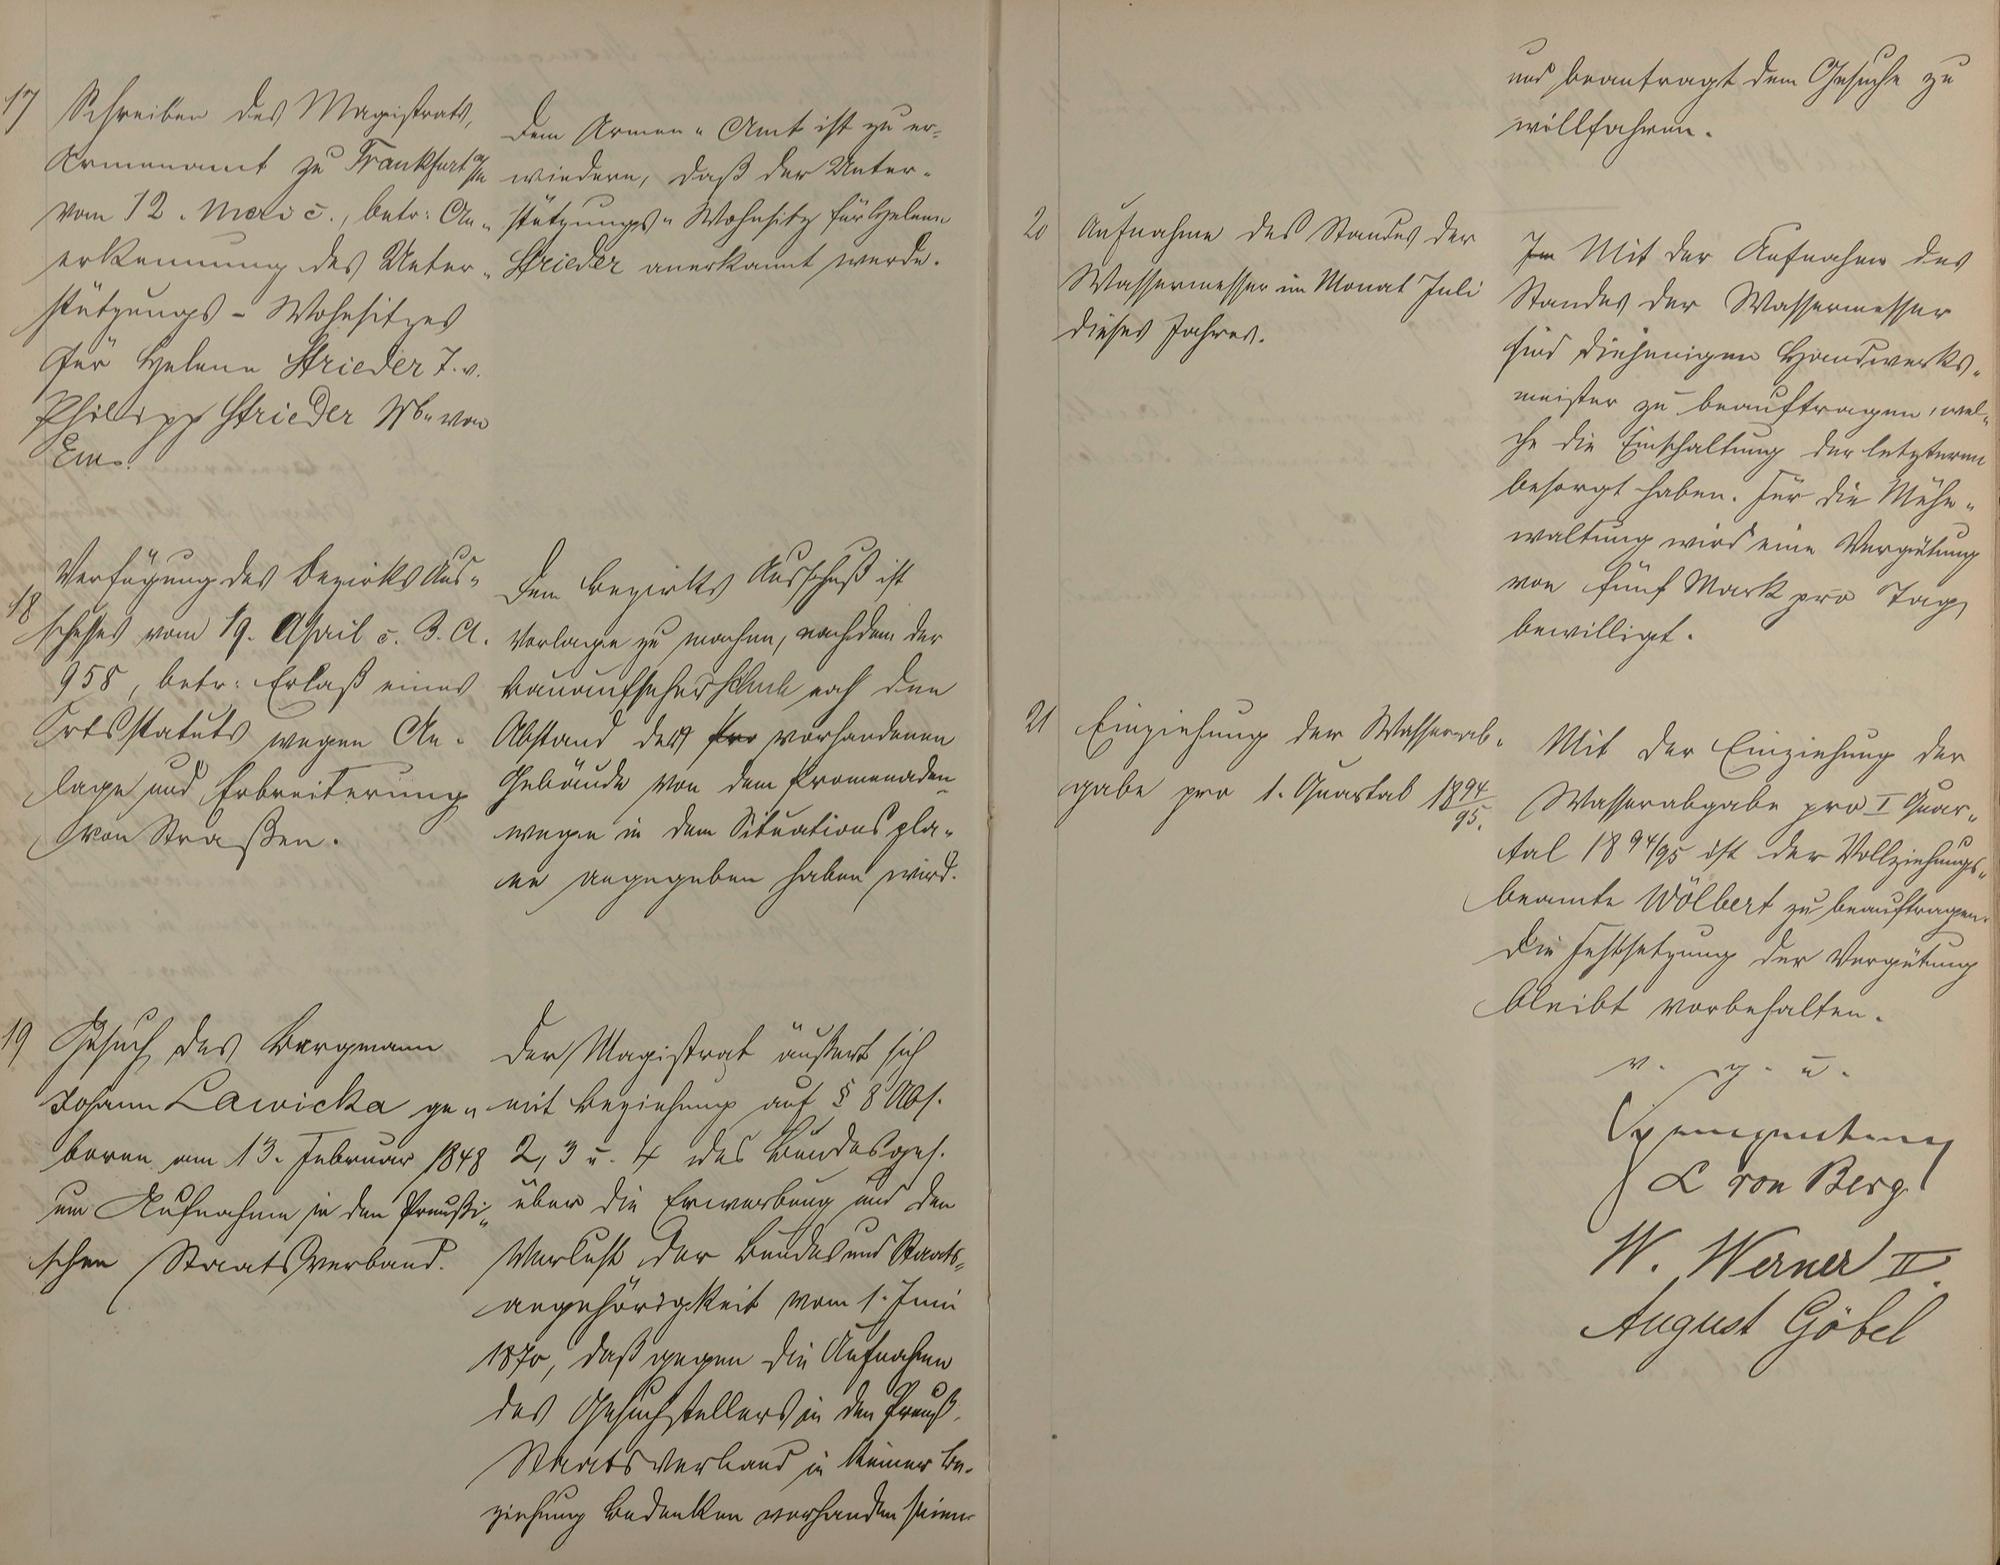 17
Schreiben des Magistrats,
Armenamt zu Frankfurt a/M
vom 12. Mai c., betr: An-
erkennung des Unter-
stützungs-Wohnsitzes
für Helene Strieder T. v.
Philipp Strieder von
Ems.
Dem Armen-Amt ist zu er-
wiedern, daß der Unter-
stützungs-Wohnsitz für Helene
Strieder anerkannt werde.
18
Verfügung des Bezirks Aus-
schusses vom 19. April c. B. A.
958, betr: Erlaß eines
Ortsstatuts wegen An-
lage und Erbreiterung
von Straßen.
Dem Bezirks Ausschuß ist
Vorlage zu machen, nachdem der
Bauaufseher noch den
Abstand der vorhandenen
Gebäude von dem Promenaden-
wege in dem Situationspla-
ne angegeben haben wird.
19
Gesuch des Bergmann
Johann Lawicka ge-
boren am 13. Februar 1848
um Aufnahme in den Preußi-
schen Staatsverband.
Der Magistrat äußert sich
mit Beziehung auf § 8 Abs.
2, 3 u. 4 des Bundesges.
über die Erwerbung und den
Verlust der Bundes und Staats-
angehörigkeit vom 1. Juni
1870, daß gegen die Aufnahme
des Gesuchstellers in den Preuß.
Staatsverband in keiner Be-
ziehung Bedenken vorhanden seien
und beantragt dem Gesuche zu
willfahren.
20
Aufnahme des Standes der
Wassermesser im Monat Juli
dieses Jahres.
Im Mit der Aufnahme des
Standes der Wassermesser
sind diejenigen Handwerks-
meister zu beauftragen, wel-
che die Einschaltung der letzteren
besorgt haben. Für die Mühe-
waltung wird eine Vergütung
von fünf Mark pro Tag
bewilligt.
21
Einziehung der Wasserab-
gabe pro 1. Quartal 1894/95.
Mit der Einziehung der
Wasserabgabe pro I Quar-
tal 1894/95 ist der Vollziehungs-
beamte Wölbert zu beauftragen.
Die Festsetzung der Vergütung
bleibt vorbehalten.
v. g. u.
L von Berg
W. Werner II.
August Göbel